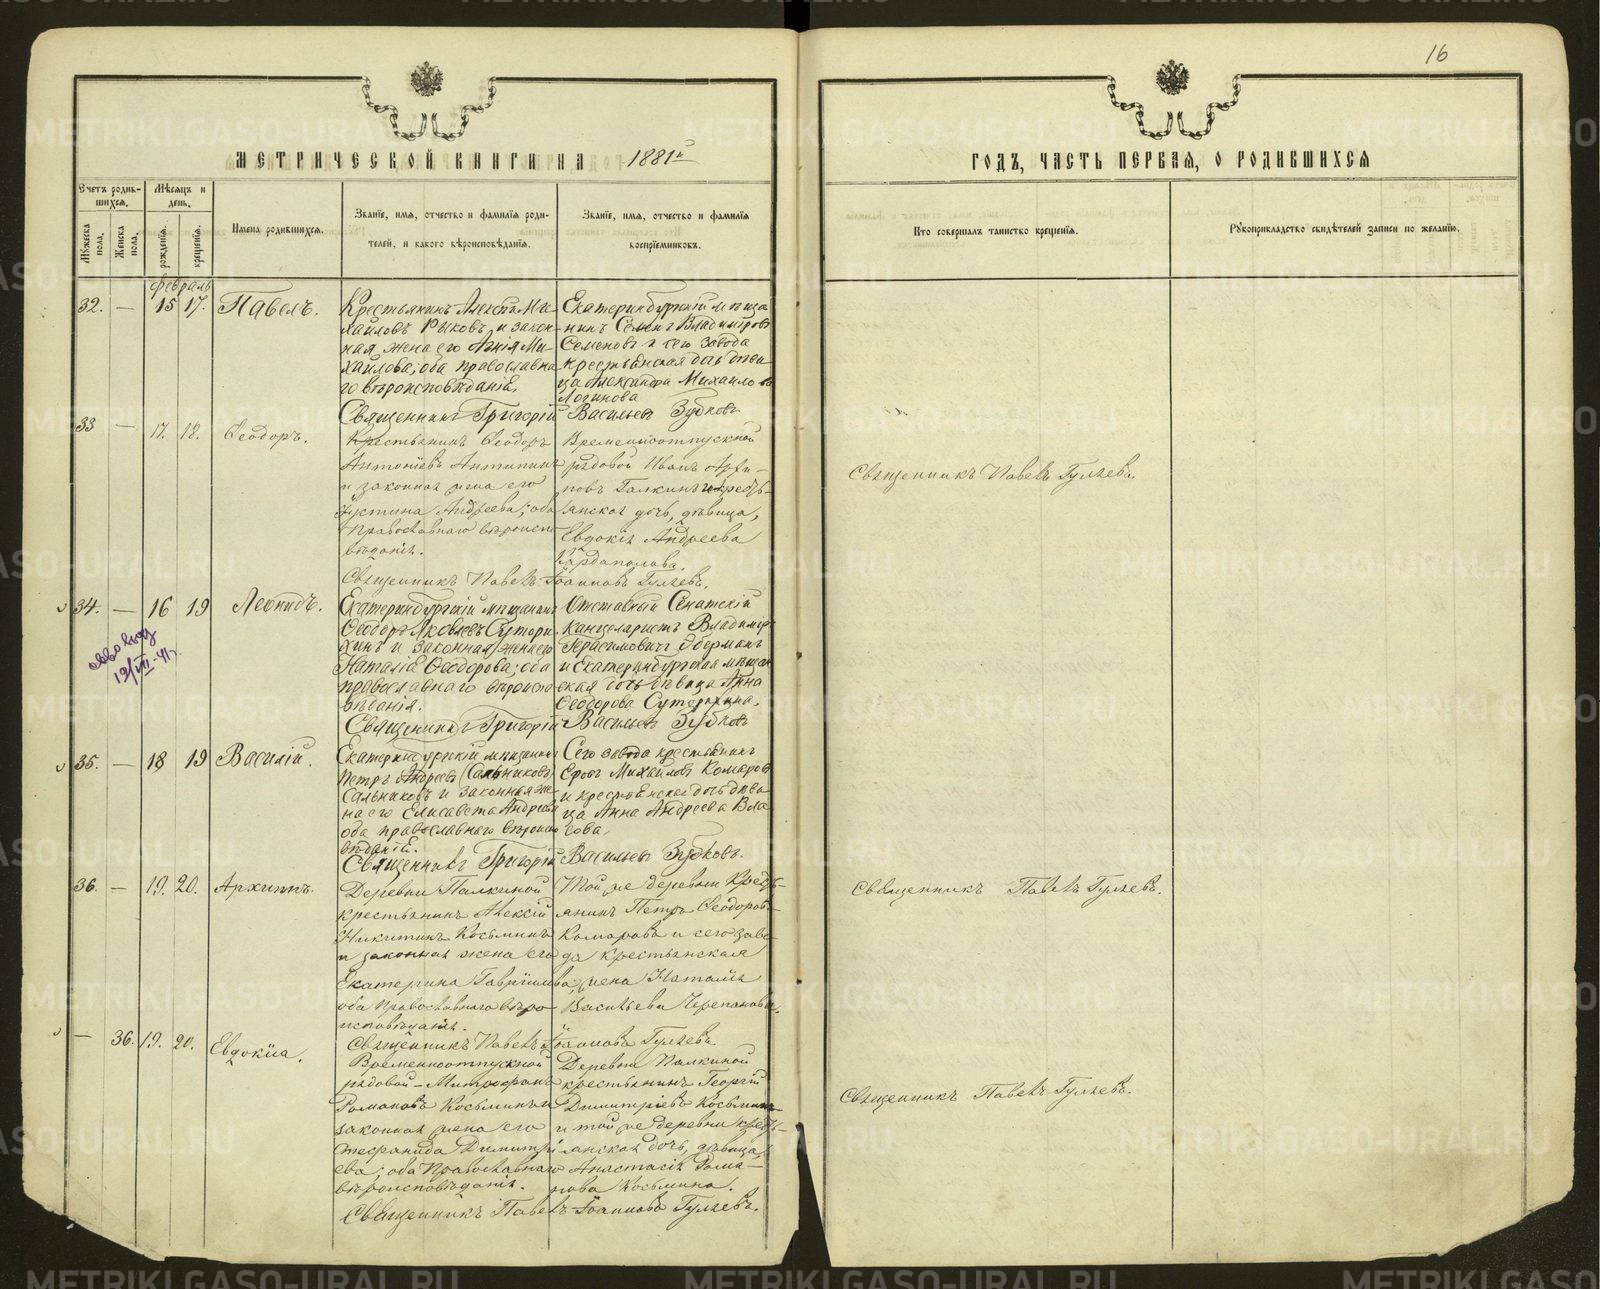 16
МЕТРИЧЕСКОЙ КНИГИ НА 1881й
ГОДЪ, ЧАСТЬ ПЕРВАЯ, О РОДИВШИХСЯ
Счетъ родив-
шихся.
Мѣсяцъ и
день.
Мужеска
пола.
Женска
пола.
рожденія.
крещенія.
Имена родившихся.
Званіе, имя, отчество и фамилія роди-
телей, и какого вѣроисповѣданія.
Званіе, имя, отчество и фамилія
воспріемниковъ.
Кто совершалъ таинство крещенія.
Рукоприкладство свидѣтелей записи по желанію.
февраль
32. — 15 17. Павелъ.
Крестьянинъ Алексѣй Ми-
хайловъ Рыковъ и закон-
ная жена его Агнія Ми-
хайлова, оба православна
го вѣроисповѣданія.
Екатеринбургскій мѣща
нинъ Семенъ Владиміровъ
Семеновъ и сего завода
крестьянская дочь дѣви
ца Александра Михайлова
Логинова
Священникъ Григорій Васильевъ Зубковъ
33 — 17. 18. Ѳеодоръ.
Крестьянинъ Ѳеодоръ
Антоніевъ Антипинъ
и законная жена его
Іустина Андреева; оба
Православнаго вѣроиспо
вѣданія.
Временноотпускной
рядовой Иванъ
Галкинъ и крестьянская дочь, дѣвица,
Евдокія Андреева
Кардаполова.
Священникъ Павелъ Іоанновъ Гуляевъ.
Священникъ Павелъ Гуляевъ.
34. — 16 19 Леонидъ.
12/VII-41 г.
Екатеринбургскій мѣщанинъ
Ѳеодоръ Яковлевъ Сутори
хинъ и законная жена его
Наталія Ѳеодорова; оба
православнаго вѣроиспо
вѣданія.
Отставный Сенатскій
Канцеляристъ Владиміръ
Герасимовичъ Оберманъ
и Екатеринбургская мѣщан
ская дочь дѣвица Анна
Ѳеодорова Суторихина.
Священникъ Григорій Васильевъ Зубковъ
35. — 18 19 Василій.
Екатеринбургскій мѣщанинъ
Петръ Андреевъ (Сальниковъ)
Сальниковъ и законная же
на его Елисавета Андреева
оба православнаго вѣроиспо
вѣданія.
Сего завода крестьянинъ
Михайловъ Комаровъ
и крестьянская дочь дѣви
ца Анна Андреева Вла
сова.
Священникъ Григорій Васильевъ Зубковъ.
36. — 19. 20. Архиппъ.
Деревни Палкиной
крестьянинъ Алексій
Никитинъ Косьминъ
и законная жена его
Екатерина Гавріилова,
оба Православнаго вѣро
исповѣданія.
Той же деревни Кресть-
янинъ Петръ Ѳеодоровъ
Комаровъ и сего заво-
да крестьянская
жена Наталія
Васильева Черепанова.
Священникъ Павелъ Іоанновъ Гуляевъ
Священникъ Павелъ Гуляевъ.
— 36. 19. 20. Евдокія.
Временноотпускной
рядовой Митрофанъ
Романовъ Косьминъ и
законная жена его
Стефанида Димитрі
ева; оба Православнаго
вѣроисповѣданія.
Деревни Палкиной
крестьянинъ Георгій
Димитріевъ Косьминъ
и той же деревни кресть-
янская дочь, дѣвица,
Анастасія Рома-
нова Косьмина.
Священникъ Павелъ Іоанновъ Гуляевъ.
Священникъ Павелъ Гуляевъ.
METRIKI.GASO-URAL.RU